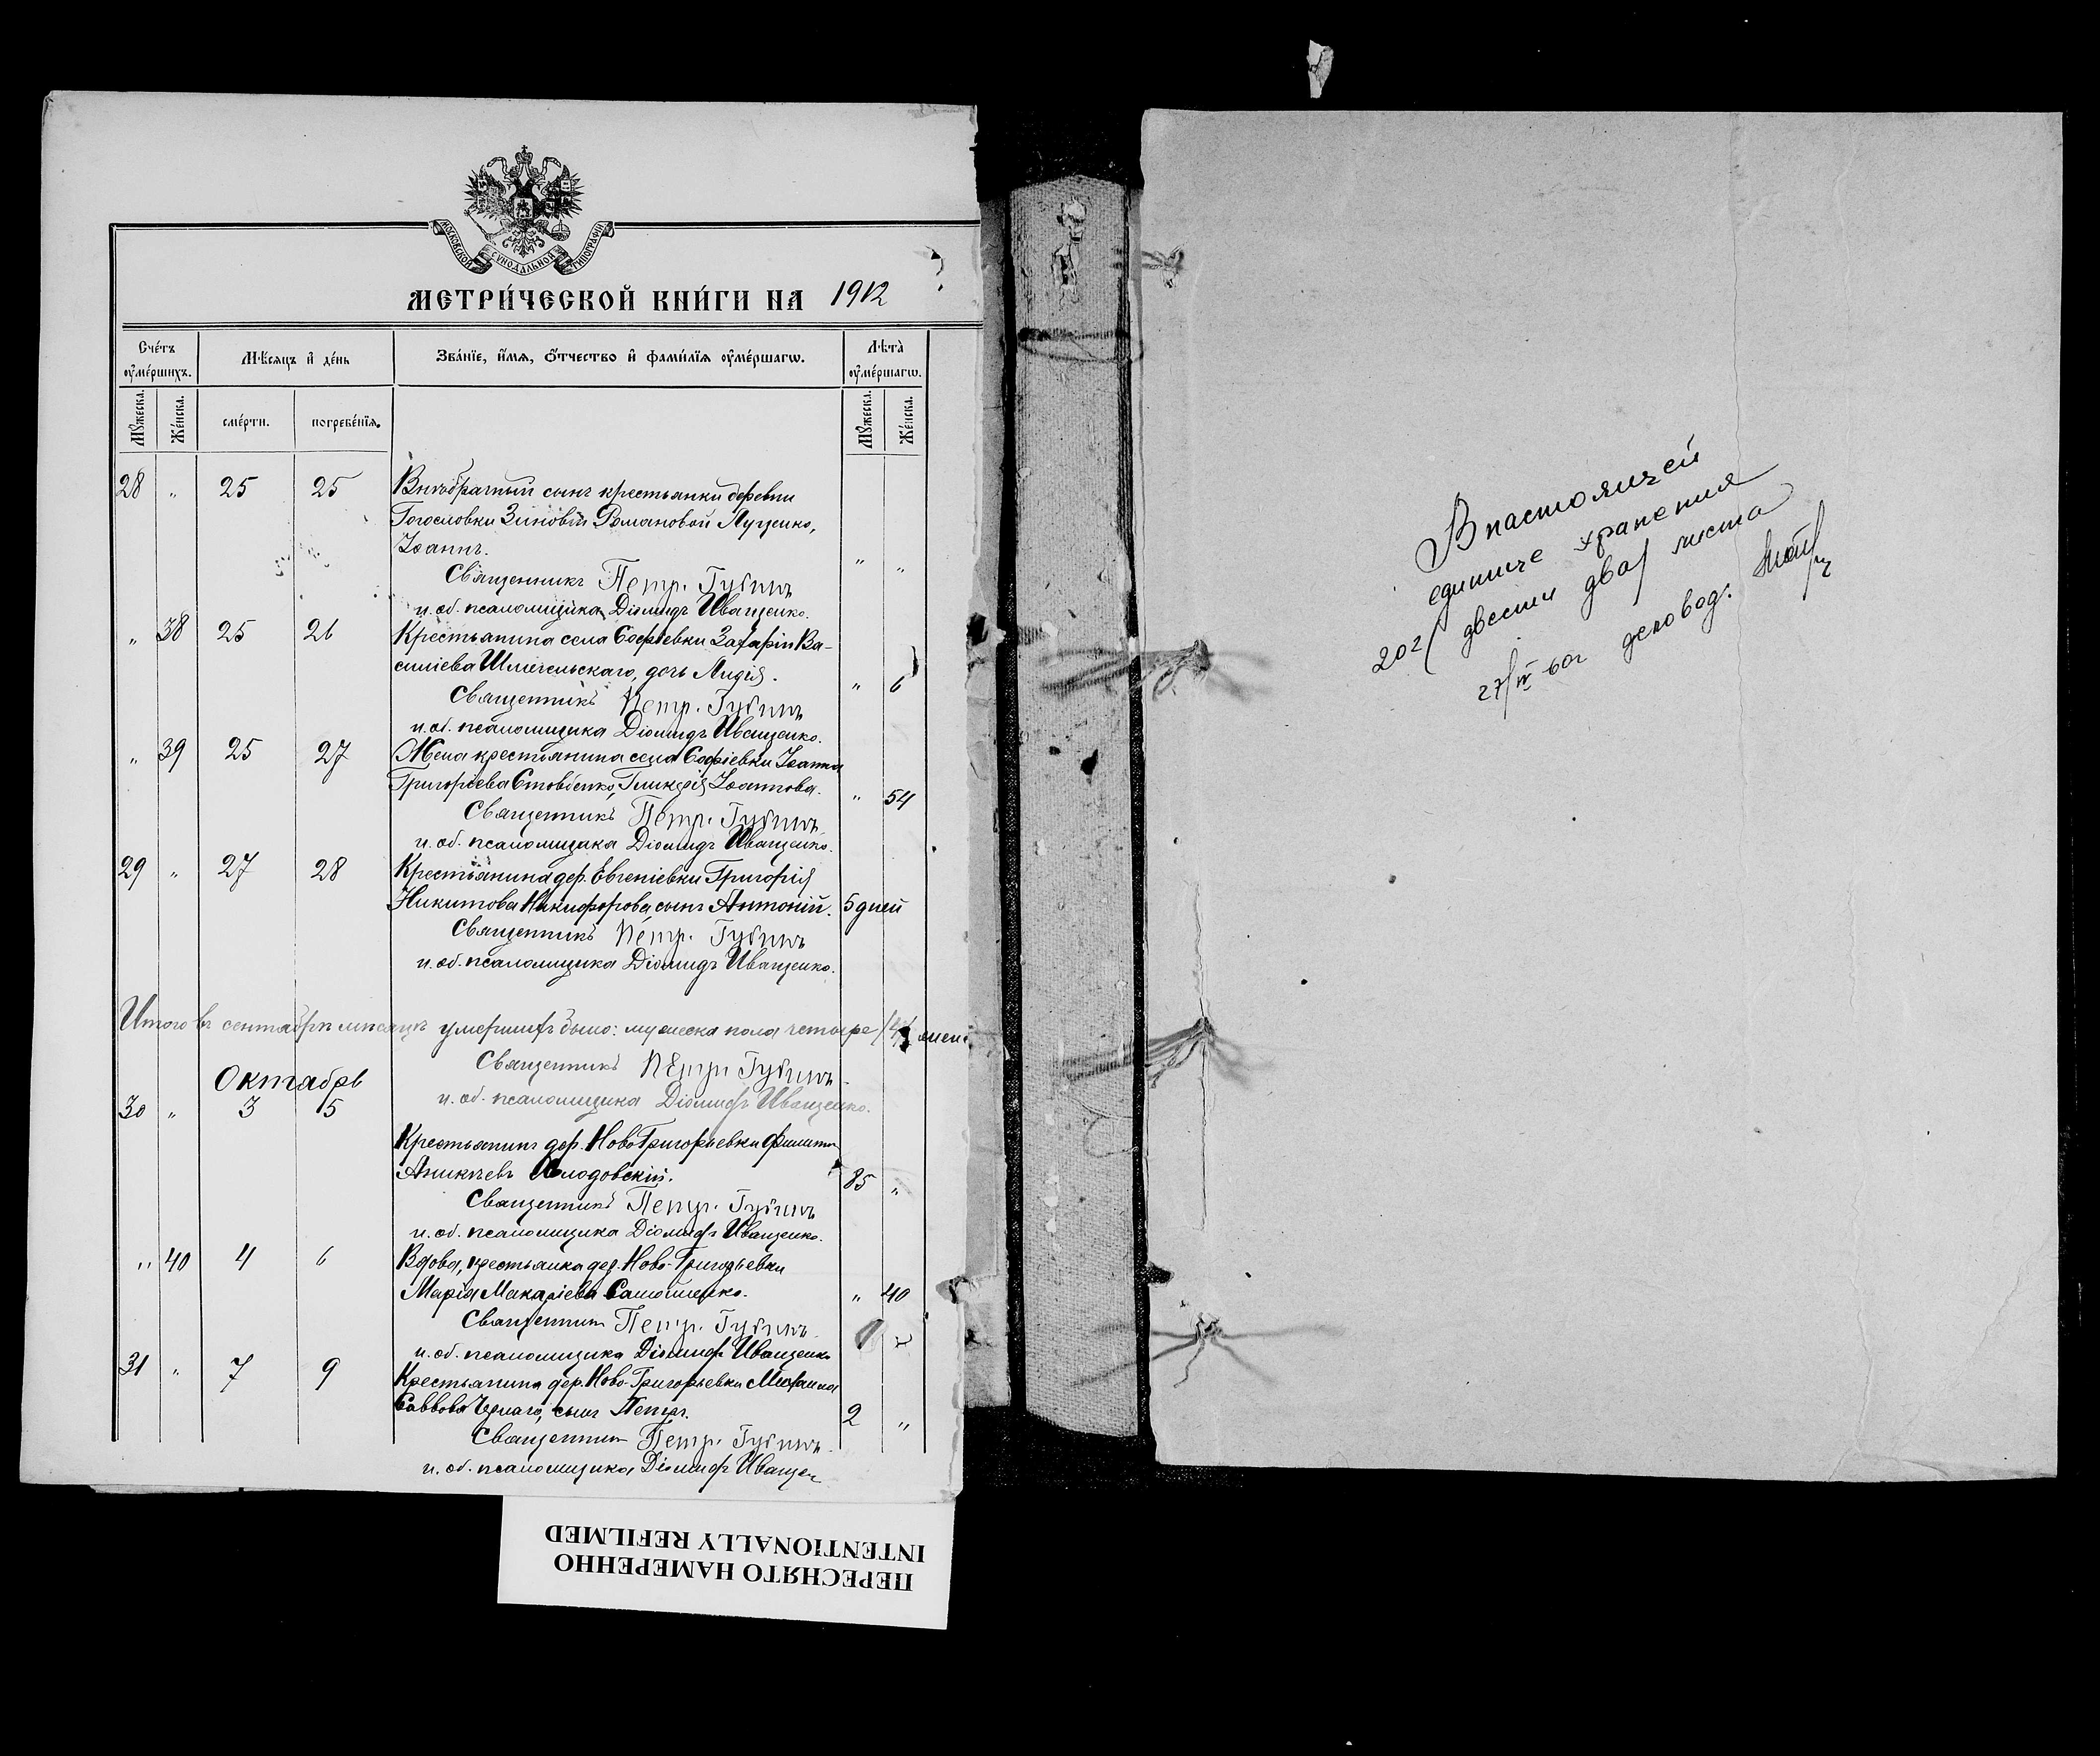 МОСКОВСКОЙ СѴНОДАЛЬНОЙ ТИПОГРАФІИ
МЕТРИ́ЧЕСКОЙ КНИ́ГИ НА 1912
Сче́тъ ᲂумє́ршихъ.
Мѣ́сяцъ и҆ де́нь
Зва́нїе, и҆́мя, ѻ҆́тчество и҆ фами́лїя ᲂу҆ме́ршагѡ.
Лѣта̀ ᲂу҆ме́ршагѡ.
Мꙋ́жеска.
Же́нска.
сме́рти.
погребе́нїя.
Мꙋ́жеска.
Же́нска.
28 " 25 25 Внѣбрачный сынъ крестьянки деревни
Богословки Зиновіи Романовой Луценко,
Іоаннъ. " "
Священникъ Петр. Губинъ
и. об. псаломщика Діомидъ Иващенко.
" 38 25 26 Крестьянина села Софіевки Захаріи Ва-
силіева Шмигельскаго, дочь Лидія. " 6
Священникъ Петр. Губинъ
и. об. псаломщика Діомидъ Иващенко.
" 39 25 27 Жена крестьянина села Софіевки Іоанна
Григоріева Стовбенко, Гликерія Іоаннова. " 54
Священникъ Петр. Губинъ
и. об. псаломщика Діомидъ Иващенко.
29 " 27 28 Крестьянина дер. Евгеніевки Григорія
Никитова Никифорова сынъ Антоній. 5 дней
Священникъ Петр. Губинъ
и. об. псаломщика Діомидъ Иващенко.
Итого въ сентябрѣ мѣсяцѣ умершихъ было: мужеска пола четыре /4/
Священникъ Петръ Губинъ
и. об. псаломщика Діомидъ Иващенко.
Октябрь
30 " 3 5
Крестьянинъ дер. Ново-Григорьевки Филиппъ
Аникіевъ Колодовскій. 85 "
Священникъ Петр. Губинъ
и. об. псаломщика Діомидъ Иващенко.
" 40 4 6 Вдова, крестьянка дер. Ново-Григорьевки
Марія Макаріева Самойленко. " 40
Священникъ Петр. Губинъ
и. об. псаломщика Діомидъ Иващенко
31 " 7 9 Крестьянина дер. Ново-Григорьевки Михаила
Саввова Чернаго, сынъ Петръ. 2 "
Священникъ Петр. Губинъ
и. об. псаломщика Діомидъ Иващен
В настоящей
единице хранения
202/ двести два/ листа
27/IV-60г деловод.
ПЕРЕСНЯТО НАМЕРЕННО
INTENTIONALLY REFILMED